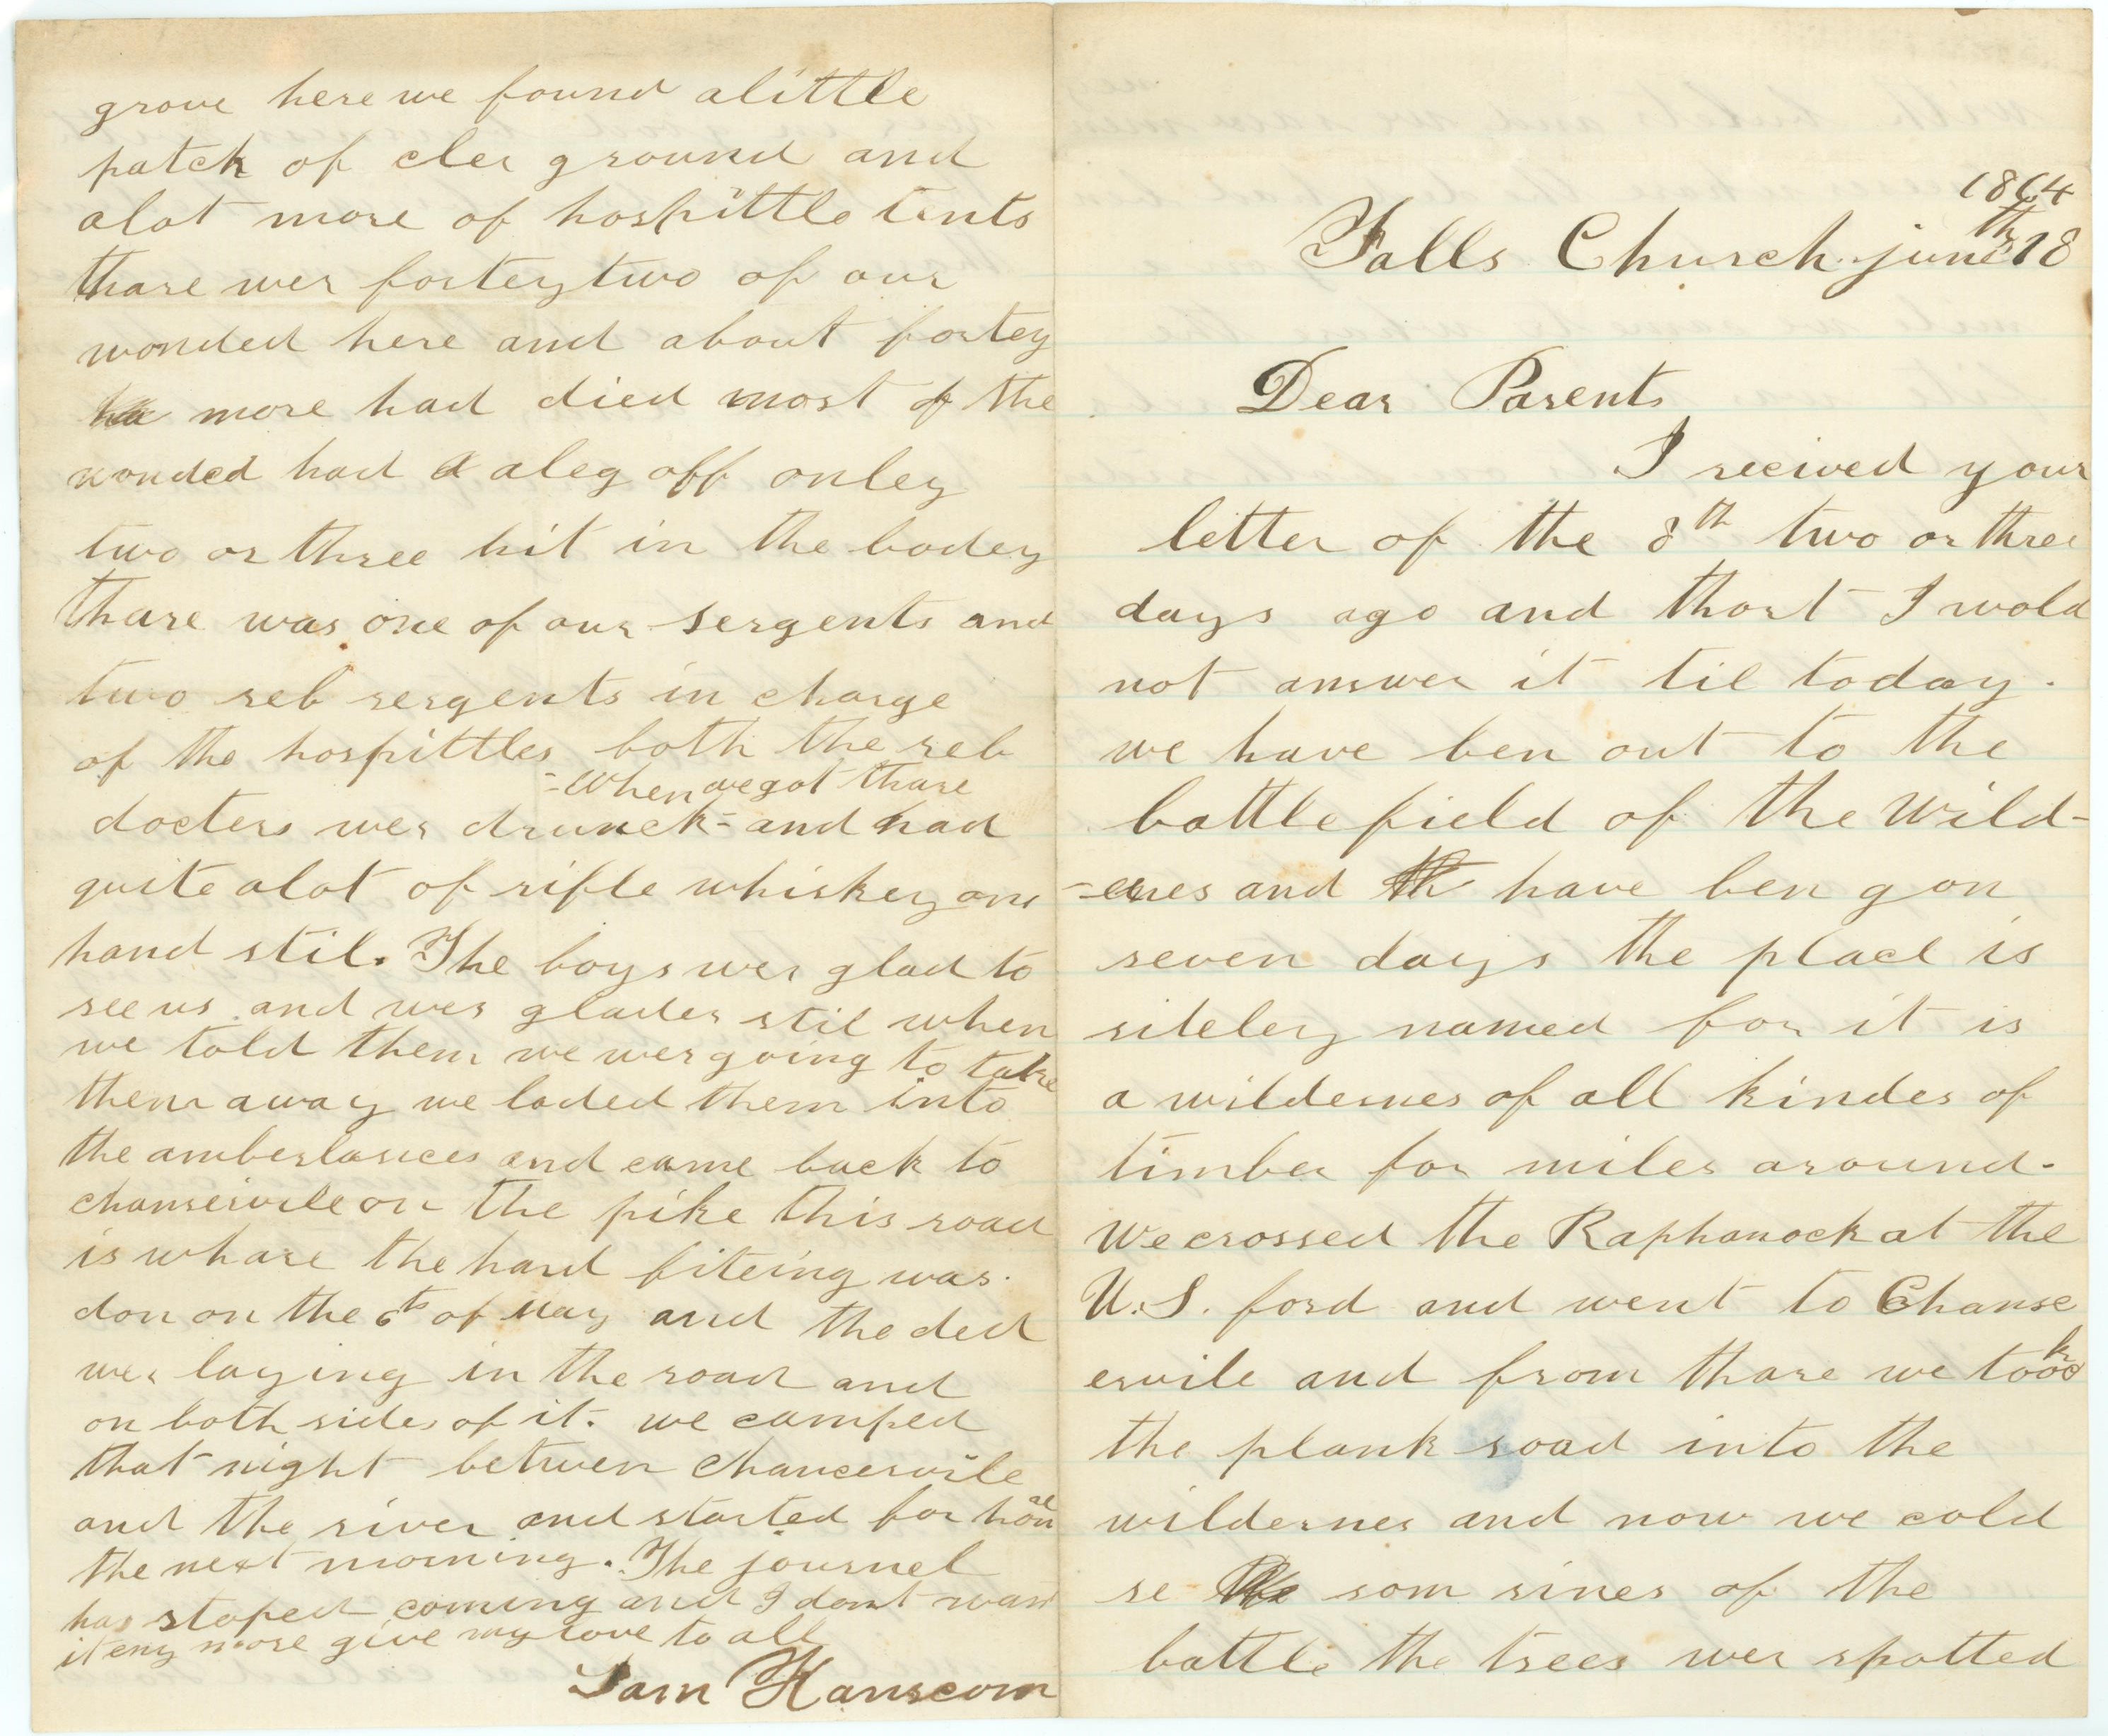 1864
Falls Church june 18th
Dear Parents
I recived your
letter of the 8th two or three
days ago and thort I wold
not answer it til today.
we have ben out to the
battlefield of the Wild-
-ernes and have ben gon
seven days the place is
riteley named for it is
a wildernes of all kindes of
timber for miles around.
We crossed the Raphanock at the
U.S. ford and went to Chanse
ervile and from thare we took
the plank road into the
wildernes and now we cold
se som sines of the
battle the trees wer spotted
grove here we found alittle
patch of cler ground and
alot more of hospittle tents
thare wer forteytwo of our
wonded here and about fortey
more had died most of the
wonded had a aleg off onley
two or three hit in the bodey
thare was one of our sergents and
two reb sergents in charge
of the hospittles both the reb
=When we got thare
docters wer drunck= and had
quite alot of rifle whiskey on
hand stil. The boys wer glad to
see us and wer glader stil when
we told them we wer going to take
them away we loded them into
the amberlances and came back to
chanservile on the pike this road
is whare the hard fiteing was
don on the 6th of May and the ded
wer laying in the road and
on both sides of it. we camped
that night betwen Chancervile
and the river and started for
the next morning. The journel
has stoped coming and I dont want
it eny more give my love to all
Sam Hanscom